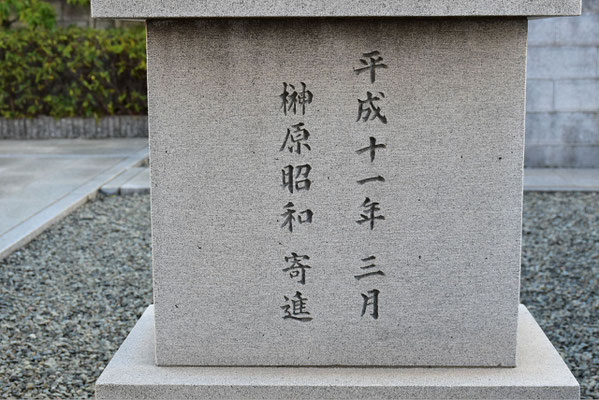 平成十一年 三月
榊原昭和 寄進